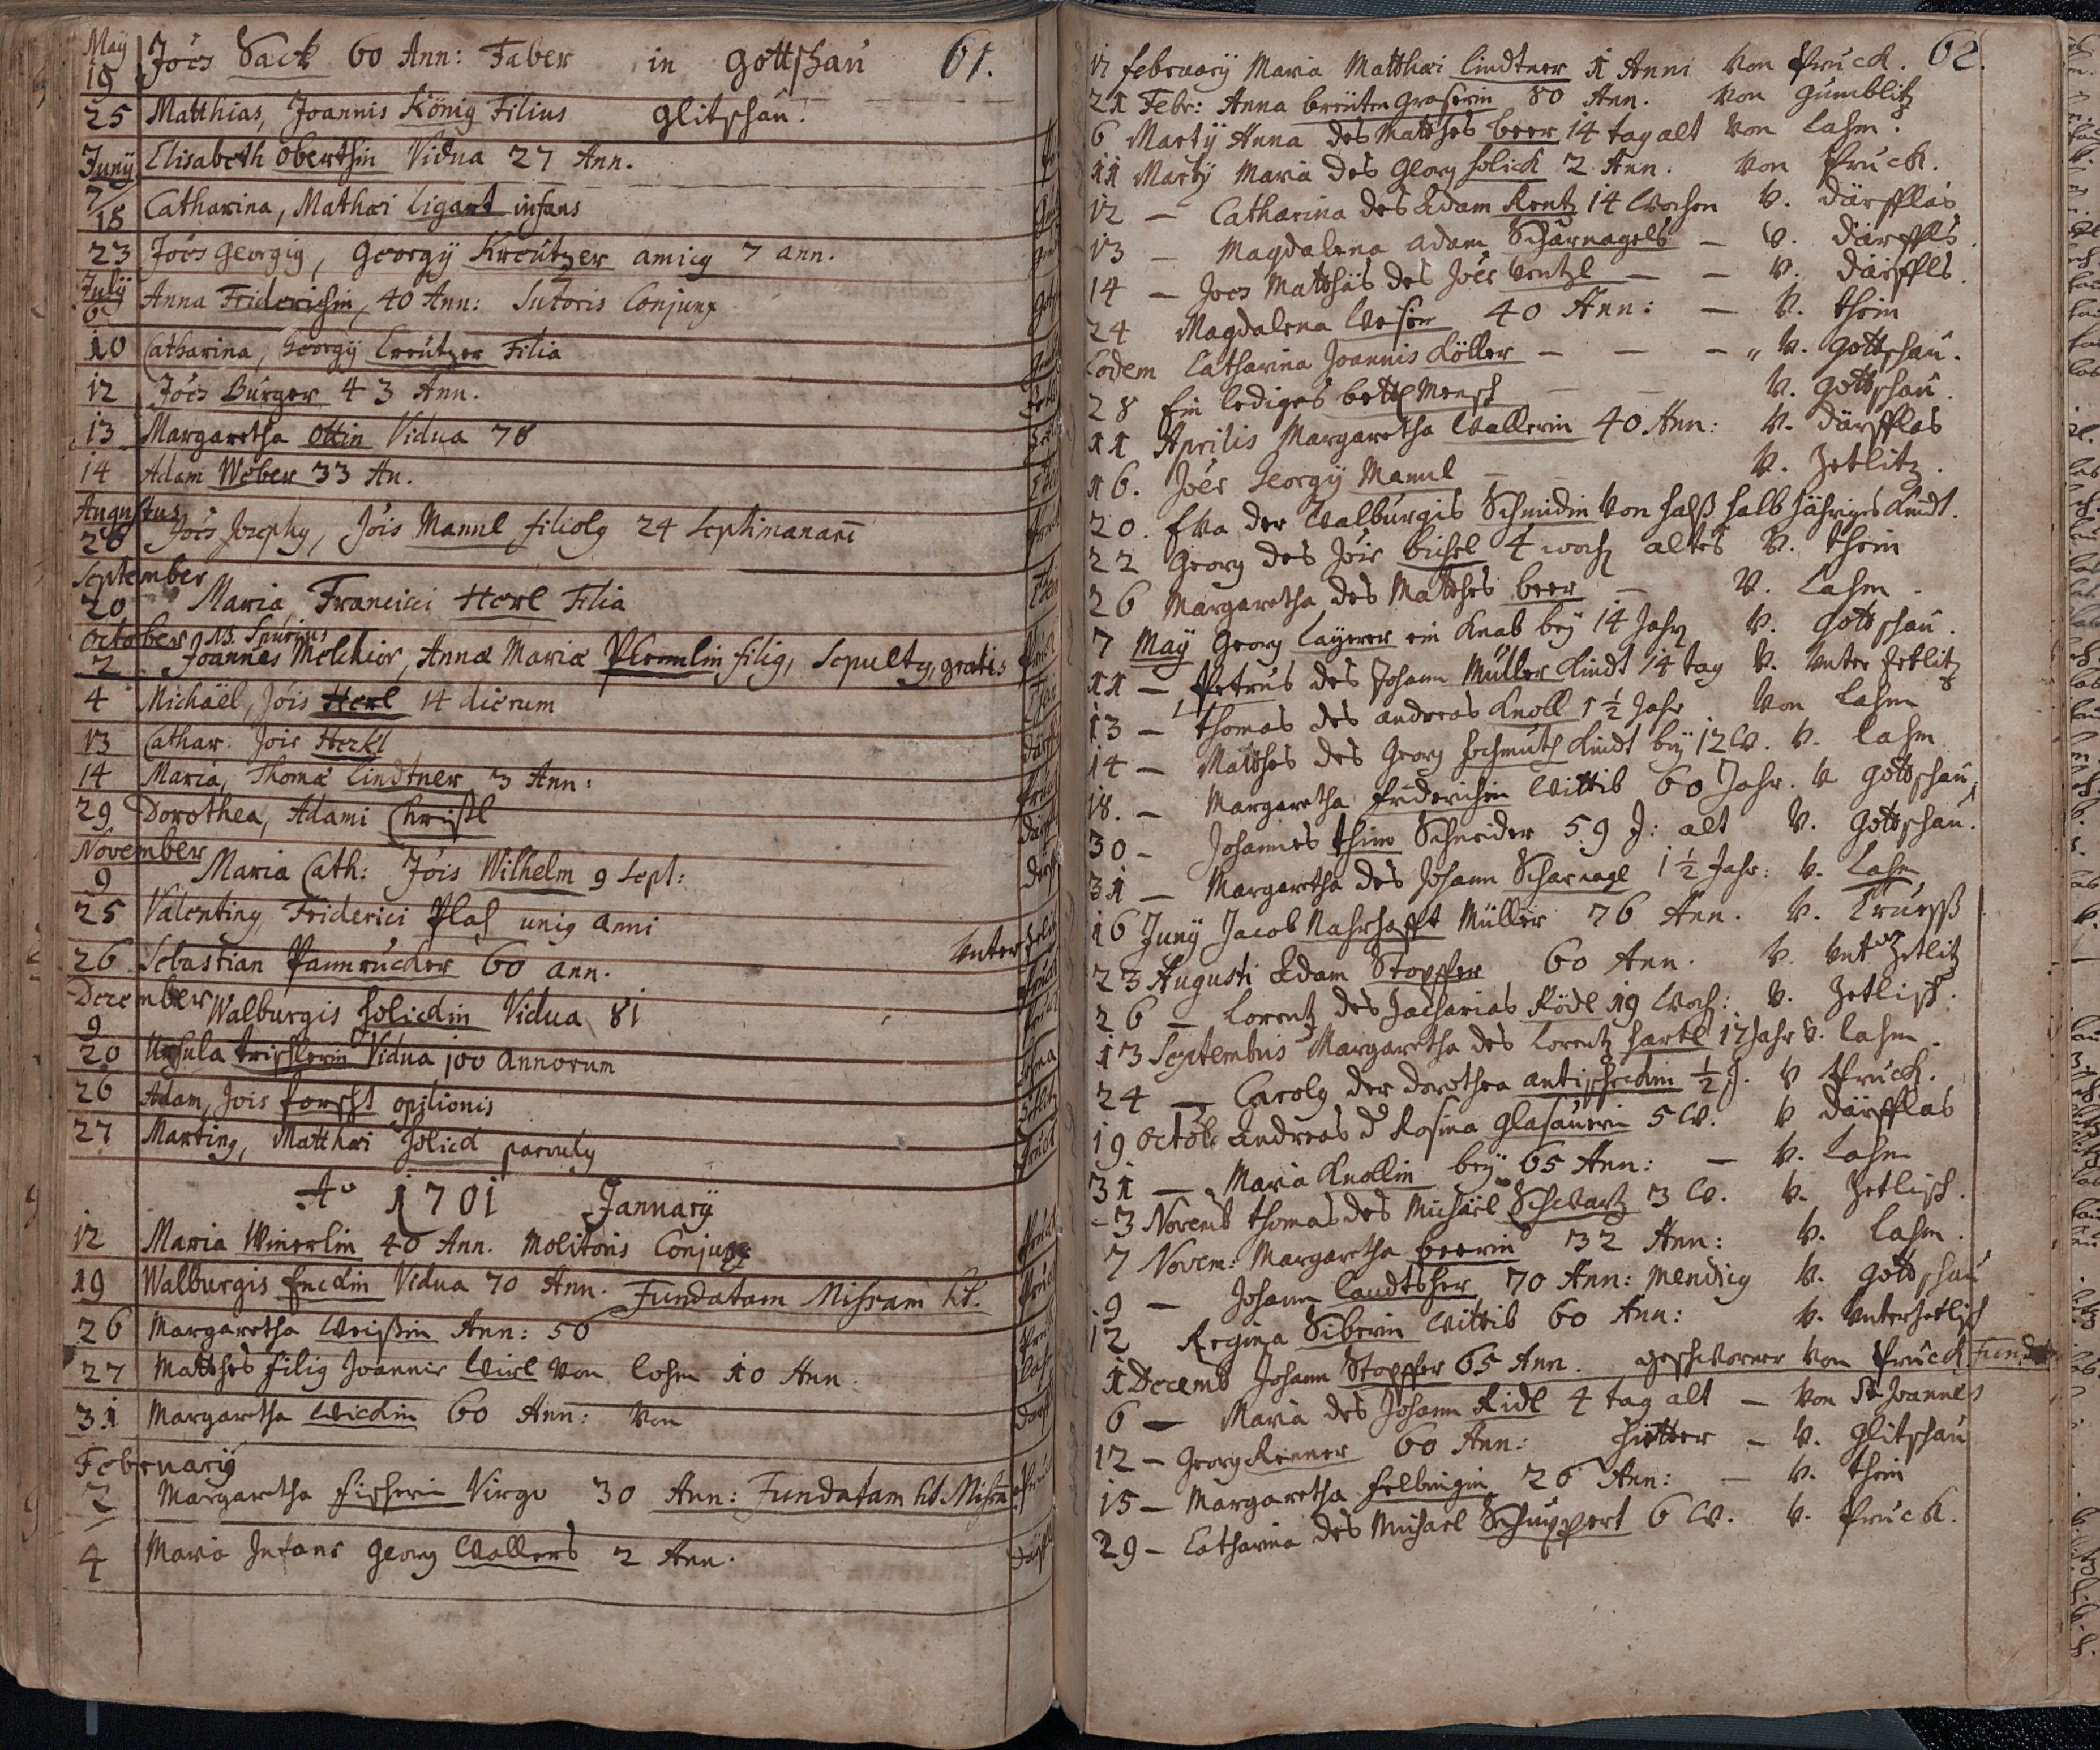 61.
May
19 Jões Sack 60 Ann: Faber in Gottschau
25 Matthias, Joannis König Filius Glitschau.
Juny
7 Elisabeth Oberthin Vidua 27 Ann.
18 Catharina, Mathæi Ligant infans
23 Jões Georgig, Georgÿ Kreützer amicg 7 ann.
July
6 Anna Friderichin, 40 Ann: Sutoris Conjunx
10 Catharina, Georgÿ Creützer Filia
12 Jões Burger 43 Ann.
13 Margaretha Ottin Vidua 78
14 Adam Weber 33 An.
Augustus
26 Jões Josephg, Jõis Mannl filiolg 24 Septimanarū
September
20 Maria Francisci Herl Filia
October NB. Spurius
2 Joannes Melchior, Annæ Mariæ Plemlin filig, Sepultg, gratis
4 Michäel, Jõis Herl 14 dierum
13 Cathar. Jõis Herkl
14 Maria, Thomæ Lindtner 3 Ann:
29 Dorothea, Adami Christl
November
9 Maria Cath: Jõis Wilhelm 9 Sept:
25 Valenting, Friderici Plas unig anni
26 Sebastian Pamrucker 60 ann. Unter
December
9 Walburgis Solickin Vidua 81
20 Ursula trischlerin Vidua 100 annorum
26 Adam, Jois forscht opilionis
27 Marting, Matthæi Solick parvulg
Aº 1701 January
12 Maria Winerlin 40 Ann. Molitoris Conjunx
19 Walburgis Enckin Vidua 70 Ann. Fundatam Missam ht.
26 Margaretha Weißin Ann: 50
27 Matthes filig Joannis Wirl von Lohm 10 Ann.
31 Margaretha Wickin 60 Ann: von
February
2 Margaretha fischerin Virgo 30 Ann: Fundatam ht Missā
4 Maria Infans Georg Wallers 2 Ann.
62.
17 february Maria Matthæi Lindtner 1 Anni von Pruck.
21 Febr: Anna Graserin 80 Ann. von Gumblitz
6 Martÿ Anna des Matthes beer 14 tag alt von Lahm.
11 Martÿ Maria des Georg Solick 2 Ann. von Pruck.
12 — Catharina des Adam Rentz 14 Wochen v. därfflas
13 — Magdalena Adam Scharnagels — v. därffls.
14 — Joes Matthiis des Joẽs Wentzl — — v. därffls.
24 Magdalena Weserin 40 Ann: — v. thein
Eodem Catharina Joannis Köller — — — v. Gottschau.
28 Ein lediges bettl Mensch — — v. Gottschau.
11 Aprilis Margaretha Wallerin 40 Ann: v. därfflas
16. Joẽs Georgÿ Mannl — v. Zetlitz.
20. Eva der Walburgis Schmidin von halß halb Jähriges Kindt.
22 Georg des Jõis bichel 4 woch altes v. thein
26 Margaretha des Matthes beer — v. Lahm
7 May Georg Layerer ein Knab bey 14 Jahr v. Gottschau.
11 — Petrus des Johann Müller Kindt 14 tag v. Unter Zetlitz
13 — thomas des andreas Knoll 1 ½ Jahr von Lahm
14 — Matthes des Georg Hochmuth Kindt bey 12 W. v. Lahm
18. — Margaretha friderichin Wittib 60 Jahr. v Gottschau.
30 — Johannes thim Schneider 59 J: alt v. Gottschau.
31 — Margaretha des Johann Scharnagl 1 ½ Jahr: v. Lahm
16 Juny Jacob Nahrhafft Müller 76 Ann. v.
23 Augusti Adam Stopffer 60 Ann. v. Unter Zetlitz
26 — Lorentz des Zacharias Rödl 19 Woch: v. Zetlisch.
13 Septembris Margaretha des Lorentz hartl 17 Jahr v. Lahm.
24 — Carolg der Dorothea antischeckin ½ J. v Pruck.
19 Octob: Andreas d Rosina Glasauerin 5 W. v därfflas
31 — Maria Knollin bey 65 Ann: — v. Lahm
3 Novemb thomas des Michäel Schwartz 3 W. v. Zetlisch.
7 Novem: Margaretha beerin 32 Ann: v. Lahm.
9 — Johann Landtsher 70 Ann: Mendicg v. Gottschau
12 Regina Siberin Wittib 60 Ann: v. Unterzetlisch
1 Decemb Johann Stopffer 65 Ann. geschworner von Pruck Fundat
6 — Maria des Johann Ridl 4 tag alt — von St Joannes
12 — Georg Renner 60 Ann: hietter — v. Glitschau
15 — Margaretha Felbingin 26 Ann: — v. thein
29 — Catharina des Michael Schuppert 6 W. v. Pruck.